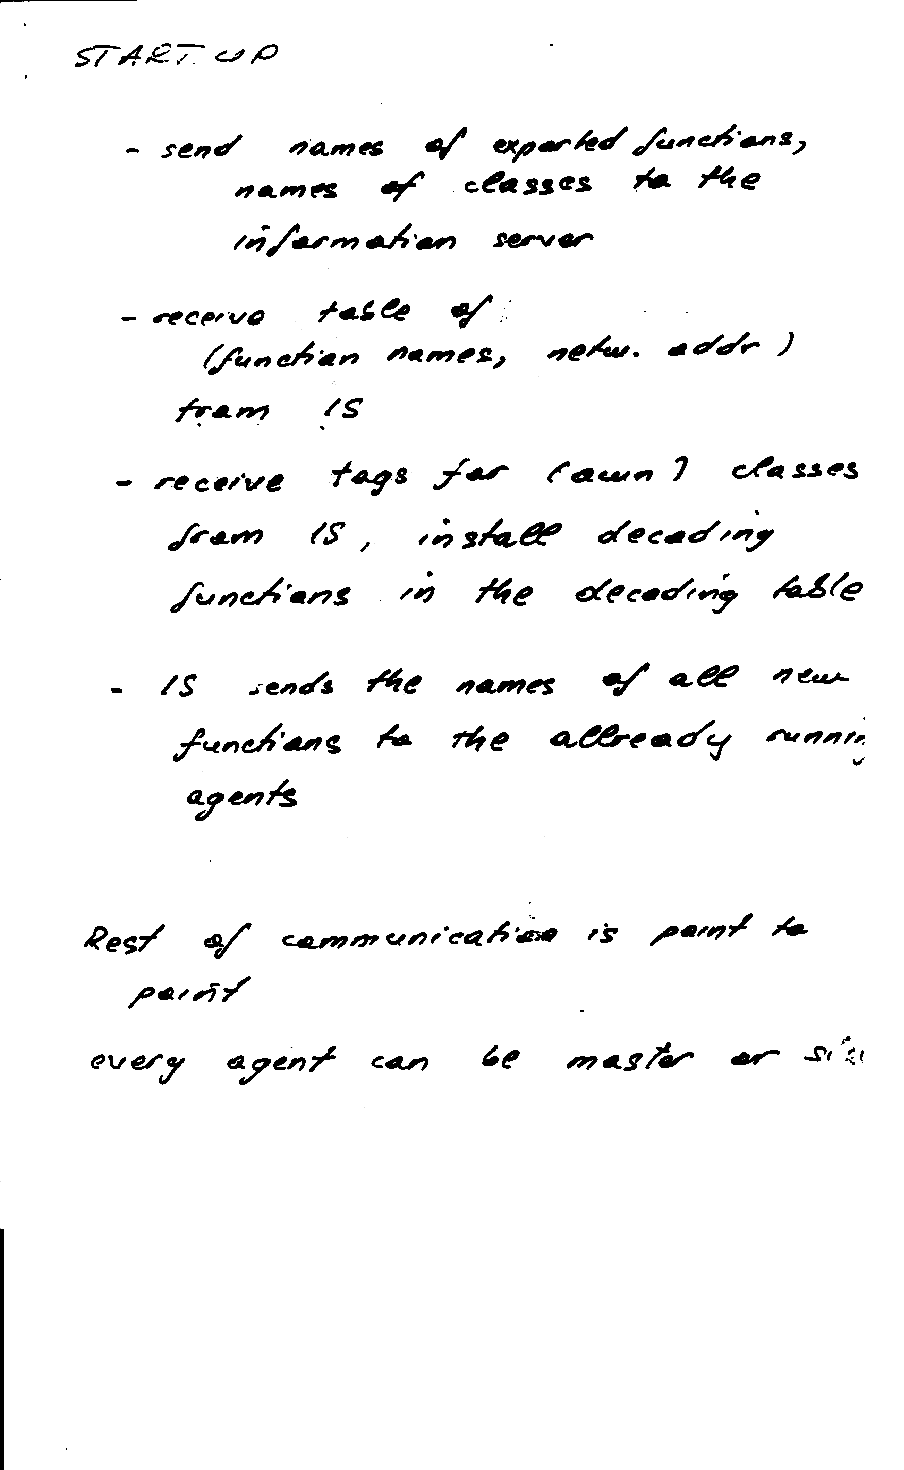 START UP
- send names of exported functions,
names of classes to the
information server
- receive table of
(function names, netw. addr )
from IS
- receive tags for (own) classes
from IS, install decoding
functions in the decoding table
- IS sends the names of all new
functions to the allready runnin
agents
Rest of communication is point to
point
every agent can be master or